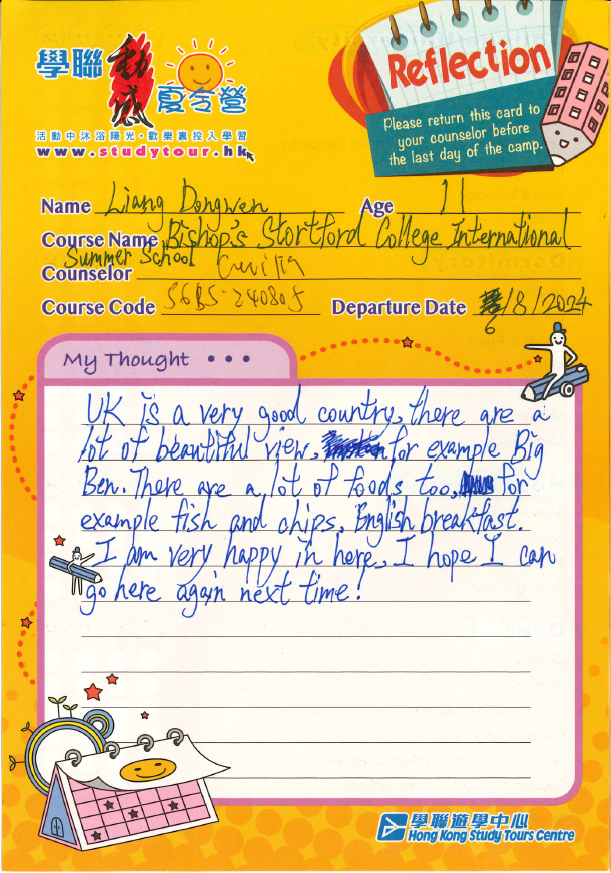 學聯
動感
夏令營
活動中沐浴陽光·歡樂裏投入學習
www.studytour.hk
Reflection
Please return this card to
your counselor before
the last day of the camp.
Name Liang Dongwen Age 11
Course Name Bishop's Stortford College International
Summer School
Counselor
Course Code Departure Date /8/2024
6
My Thought •••
UK is a very good country, there are a
lot of beautiful view, for example Big
Ben. There are a lot of foods too, for
example fish and chips, English breakfast.
I am very happy in here, I hope I can
go here again next time!
學聯遊學中心
Hong Kong Study Tours Centre